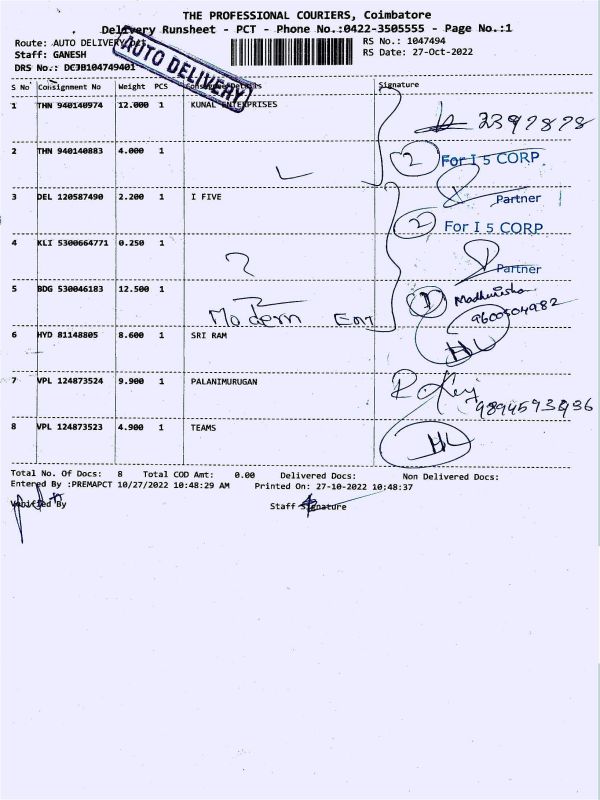 THE PROFESSIONAL COURIERS, Coimbatore
Delivery Runsheet - PCT - Phone No.:0422-3505555 - Page No.:1
Route: AUTO DELIVERY
RS No.: 1047494
Staff: GANESH
RS Date: 27-Oct-2022
DRS No.: DCJB104749401
AUTO DELIVERY
S No Consignment No Weight PCS Consignee Details Signature
1 THN 940140974 12.000 1 KUNAL ENTERPRISES
2397878
2 THN 940140883 4.000 1
2 For I 5 CORP.
3 DEL 120587490 2.200 1 I FIVE
Partner
2 For I 5 CORP
4 KLI 5300664771 0.250 1
Partner
5 BDG 530046183 12.500 1
1 9600504982
Modern Ent
6 HYD 81148805 8.600 1 SRI RAM
7 VPL 124873524 9.900 1 PALANIMURUGAN
8 VPL 124873523 4.900 1 TEAMS
Total No. Of Docs: 8 Total COD Amt: 0.00 Delivered Docs: Non Delivered Docs:
Entered By :PREMAPCT 10/27/2022 10:48:29 AM Printed On: 27-10-2022 10:48:37
Verified By
Staff Signature